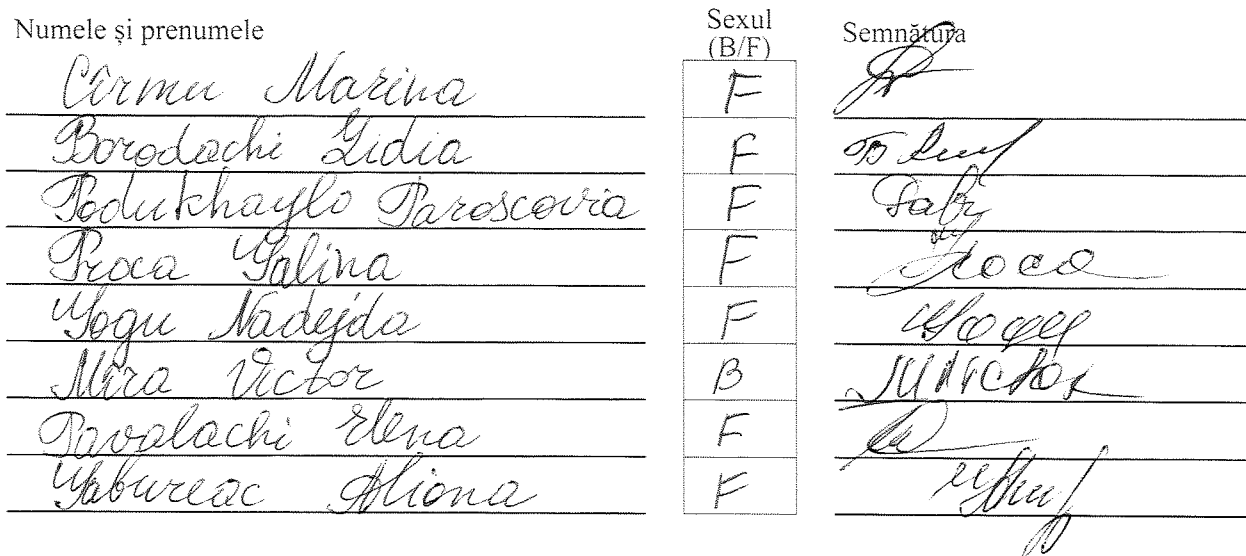 Numele și prenumele Sexul (B/F) Semnătura
Cîrmu Marina F
Borodachi Lidia F
Podukhaylo Paroscovia F
Proca Galina F
Gogu Nadejda F
Mîra Victor B
Pavalachi Elena F
Gabureac Aliona F